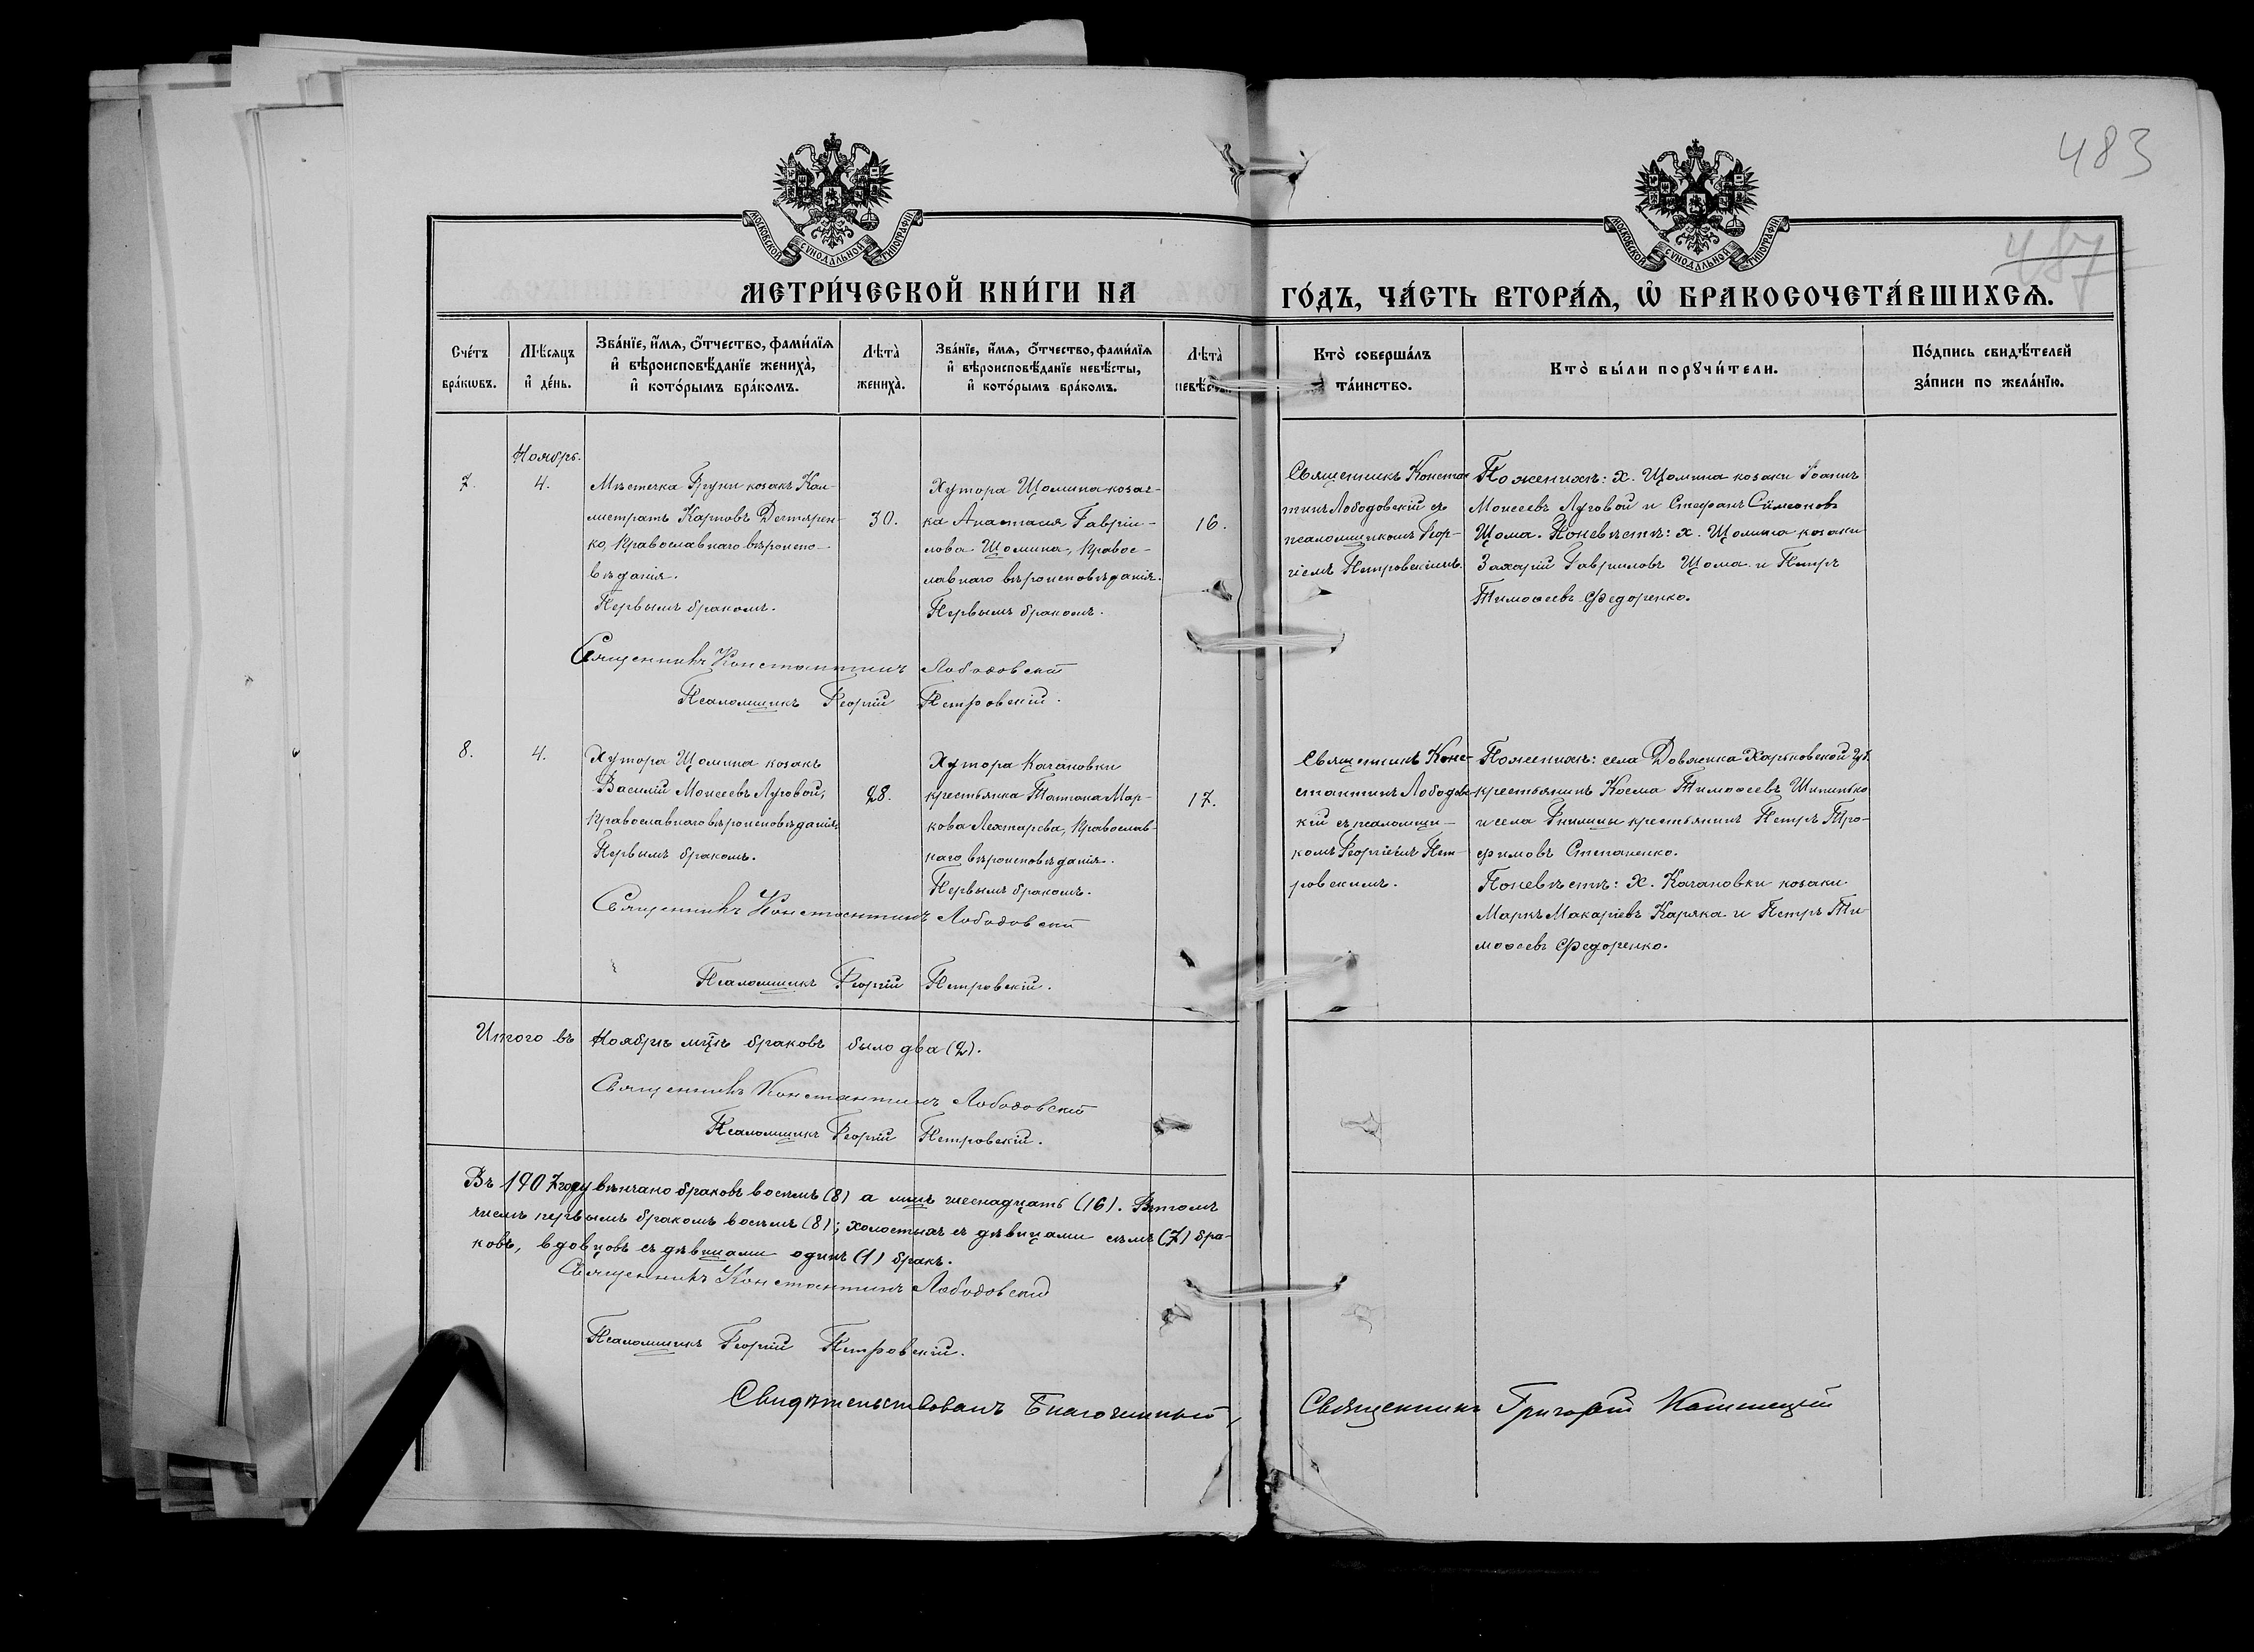 483
487
МОСКОВСКОЙ СѴНОДАЛЬНОЙ ТИПОГРАФІИ
МОСКОВСКОЙ СѴНОДАЛЬНОЙ ТИПОГРАФІИ
МЕТРИ́ЧЕСКОЙ КНИ́ГИ НА
ГО́ДЪ, ЧА́СТЬ ВТОРА́Ѧ, Ѡ҆ БРАКОСОЧЕТА́ВШИХСѦ.
Сче́тъ
бра́кѡвъ.
Мѣ́сѧцъ
и҆ де́нь.
Зва́нїе, и҆́мѧ, ѻ҆́тчество, фами́лїѧ
и҆ вѣроисповѣ́данїе жениха̀,
и҆ кото́рымъ бра́комъ.
Лѣта̀
жениха̀.
Зва́нїе, и҆́мѧ, ѻ҆́тчество, фами́лїѧ
и҆ вѣроисповѣ́данїе невѣ́сты,
и҆ кото́рымъ бра́комъ.
Лѣта̀
невѣ́сты.
Кто̀ соверша́лъ
та́инство.
Кто̀ бы́ли порꙋчи́тели.
По́дпись свидѣ́телей
за́писи по жела́нїю.
7.
Ноябрь.
4.
Мѣстечка Груни козакъ Кал-
листратъ Карповъ Дегтярен-
ко, Православнаго вѣроиспо-
вѣданія.
Первымъ бракомъ.
30.
Хутора Щомина козач-
ка Анастасія Гавріи-
лова Щомина, Правос-
лавнаго вѣроисповѣданія.
Первымъ бракомъ.
16.
Священникъ Констан
тинъ Лободовскій съ
псаломщикомъ Геор-
гіемъ Петровскимъ.
По женихѣ: х. Щомина козаки Іоаннъ
Моисеевъ Луговой и Стефанъ Сѵмеоновъ
Щома. По невѣстѣ: х. Щомина козаки
Захарій Гавриловъ Щома и Петръ
Тимоѳеевъ Федоренко.
Священникъ Константинъ Лободовскій
Псаломщикъ Георгій Петровскій.
8.
4.
Хутора Щомина козакъ
Василій Моисеевъ Луговой,
Православнаго вѣроисповѣданія
Первымъ бракомъ.
28.
Хутора Качановки
крестьянка Татіана Мар-
кова Лехтарева, Православ-
наго вѣроисповѣданія.
Первымъ бракомъ.
17.
Священникъ Конс-
тантинъ Лободовс-
кій съ псаломщи-
комъ Георгіемъ Пет-
ровскимъ.
По женихѣ: села Довжика Харьковской губ.
крестьянинъ Косма Тимоѳеевъ
и села Гнилицы крестьянинъ Петръ Тро-
фимовъ Степаненко.
По невѣстѣ: х. Качановки козаки
Маркъ Макаріевъ Каряка и Петръ Ти-
моѳеевъ Федоренко.
Священникъ Константинъ Лободовскій
Псаломщикъ Георгій Петровскій.
Итого въ Ноябрѣ мцѣ браковъ было два (2).
Священникъ Константинъ Лободовскій
Псаломщикъ Георгій Петровскій.
Въ 1907 году вѣнчано браковъ восемь (8) а лицъ шеснадцать (16). Въ томъ
числѣ первымъ бракомъ восемь (8); холостыхъ съ дѣвицами семь (7) бра-
ковъ, вдовцовъ съ дѣвицами одинъ (1) бракъ.
Священникъ Константинъ Лободовскій
Псаломщикъ Георгій Петровскій.
Свидѣтельствовалъ Благочинный, Священникъ Григорій